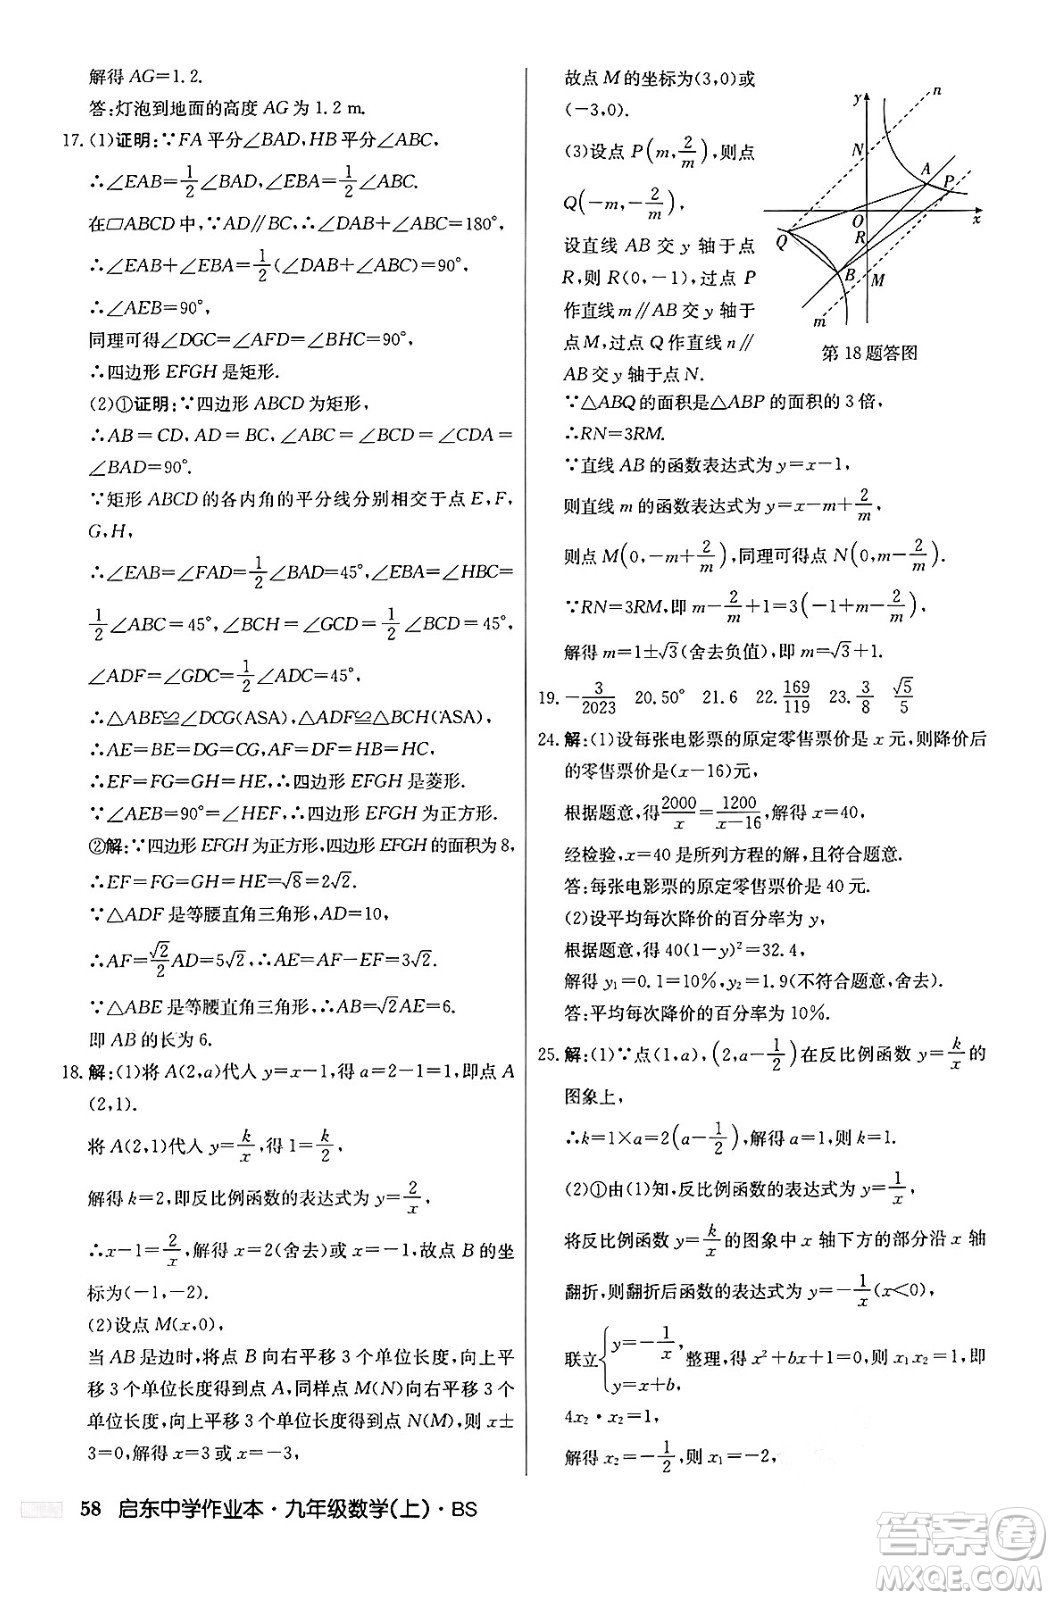 解得 AG=1.2.
答:灯泡到地面的高度 AG 为 1.2 m.
17.(1)证明:∵FA 平分∠BAD,HB 平分∠ABC,
∴∠EAB=1/2∠BAD,∠EBA=1/2∠ABC.
在▱ABCD 中,∵AD∥BC,∴∠DAB+∠ABC=180°,
∴∠EAB+∠EBA=1/2(∠DAB+∠ABC)=90°,
∴∠AEB=90°,
同理可得∠DGC=∠AFD=∠BHC=90°,
∴四边形 EFGH 是矩形.
(2)①证明:∵四边形 ABCD 为矩形,
∴AB=CD,AD=BC,∠ABC=∠BCD=∠CDA=
∠BAD=90°.
∵矩形 ABCD 的各内角的平分线分别相交于点 E,F,
G,H,
∴∠EAB=∠FAD=1/2∠BAD=45°,∠EBA=∠HBC=
1/2∠ABC=45°,∠BCH=∠GCD=1/2∠BCD=45°,
∠ADF=∠GDC=1/2∠ADC=45°,
∴△ABE≌△DCG(ASA),△ADF≌△BCH(ASA),
∴AE=BE=DG=CG,AF=DF=BH=CH,
∴EF=FG=GH=HE,∴四边形 EFGH 是菱形.
∵∠AEB=90°=∠HEF,∴四边形 EFGH 为正方形.
②解:∵四边形 EFGH 为正方形,四边形 EFGH 的面积为 8,
∴EF=FG=GH=HE=√8=2√2.
∵△ADF 是等腰直角三角形,AD=10,
∴AF=√2/2AD=5√2,∴AE=AF-EF=3√2.
∵△ABE 是等腰直角三角形,∴AB=√2AE=6.
即 AB 的长为 6.
18.解:(1)将 A(2,a)代入 y=x-1,得 a=2-1,即点 A
(2,1).
将 A(2,1)代入 y=k/x,得 1=k/2,
解得 k=2,即反比例函数的表达式为 y=2/x,
∴x-1=2/x,解得 x=2(舍去)或 x=-1,故点 B 的坐
标为(-1,-2).
(2)设点 M(x,0),
当 AB 是边时,将点 B 向右平移 3 个单位长度,向上平
移 3 个单位长度得到点 A,同样点 M(N)向右平移 3 个
单位长度,向上平移 3 个单位长度得到点 N(M),则 x±
3=0,解得 x=3 或 x=-3,
故点 M 的坐标为(3,0)或
(-3,0).
(3)设点 P(m,2/m),则点
Q(-m,-2/m),
设直线 AB 交 y 轴于点
R,则 R(0,-1),过点 P
作直线 m∥AB 交 y 轴于
点 M,过点 Q 作直线 n∥
AB 交 y 轴于点 N.
y
n
N
A
P
O
x
Q
R
B
M
m
第 18 题答图
∵△ABQ 的面积是△ABP 的面积的 3 倍,
∴RN=3RM.
∵直线 AB 的函数表达式为 y=x-1,
则直线 m 的函数表达式为 y=x-m+2/m,
则点 M(0,-m+2/m),同理可得点 N(0,m-2/m).
∵RN=3RM,即 m-2/m+1=3(-1+m-2/m),
解得 m=1±√3(舍去负值),即 m=√3+1.
19.-3/2023 20.50° 21.6 22.169/119 23.3/8 √5/5
24.解:(1)设每张电影票的原定零售票价是 x 元,则降价后
的零售票价是(x-16)元,
根据题意,得2000/x=1200/(x-16),解得 x=40,
经检验,x=40 是所列方程的解,且符合题意.
答:每张电影票的原定零售票价是 40 元.
(2)设平均每次降价的百分率为 y,
根据题意,得 40(1-y)²=32.4,
解得 y₁=0.1=10%,y₂=1.9(不符合题意,舍去).
答:平均每次降价的百分率为 10%.
25.解:(1)∵点(1,a),(2,a-1/2)在反比例函数 y=k/x 的
图象上,
∴k=1×a=2(a-1/2),解得 a=1,则 k=1.
(2)①由(1)知,反比例函数的表达式为 y=1/x,
将反比例函数 y=k/x 的图象中 x 轴下方的部分沿 x 轴
翻折,则翻折后函数的表达式为 y=-1/x(x<0),
联立{y=-1/x, y=x+b,整理,得 x²+bx+1=0,则 x₁x₂=1=
4x₂·x₂=1,
解得 x₂=-1/2,则 x₁=-2,
58 启东中学作业本·九年级数学(上)·BS
答案圈
MXQE.COM